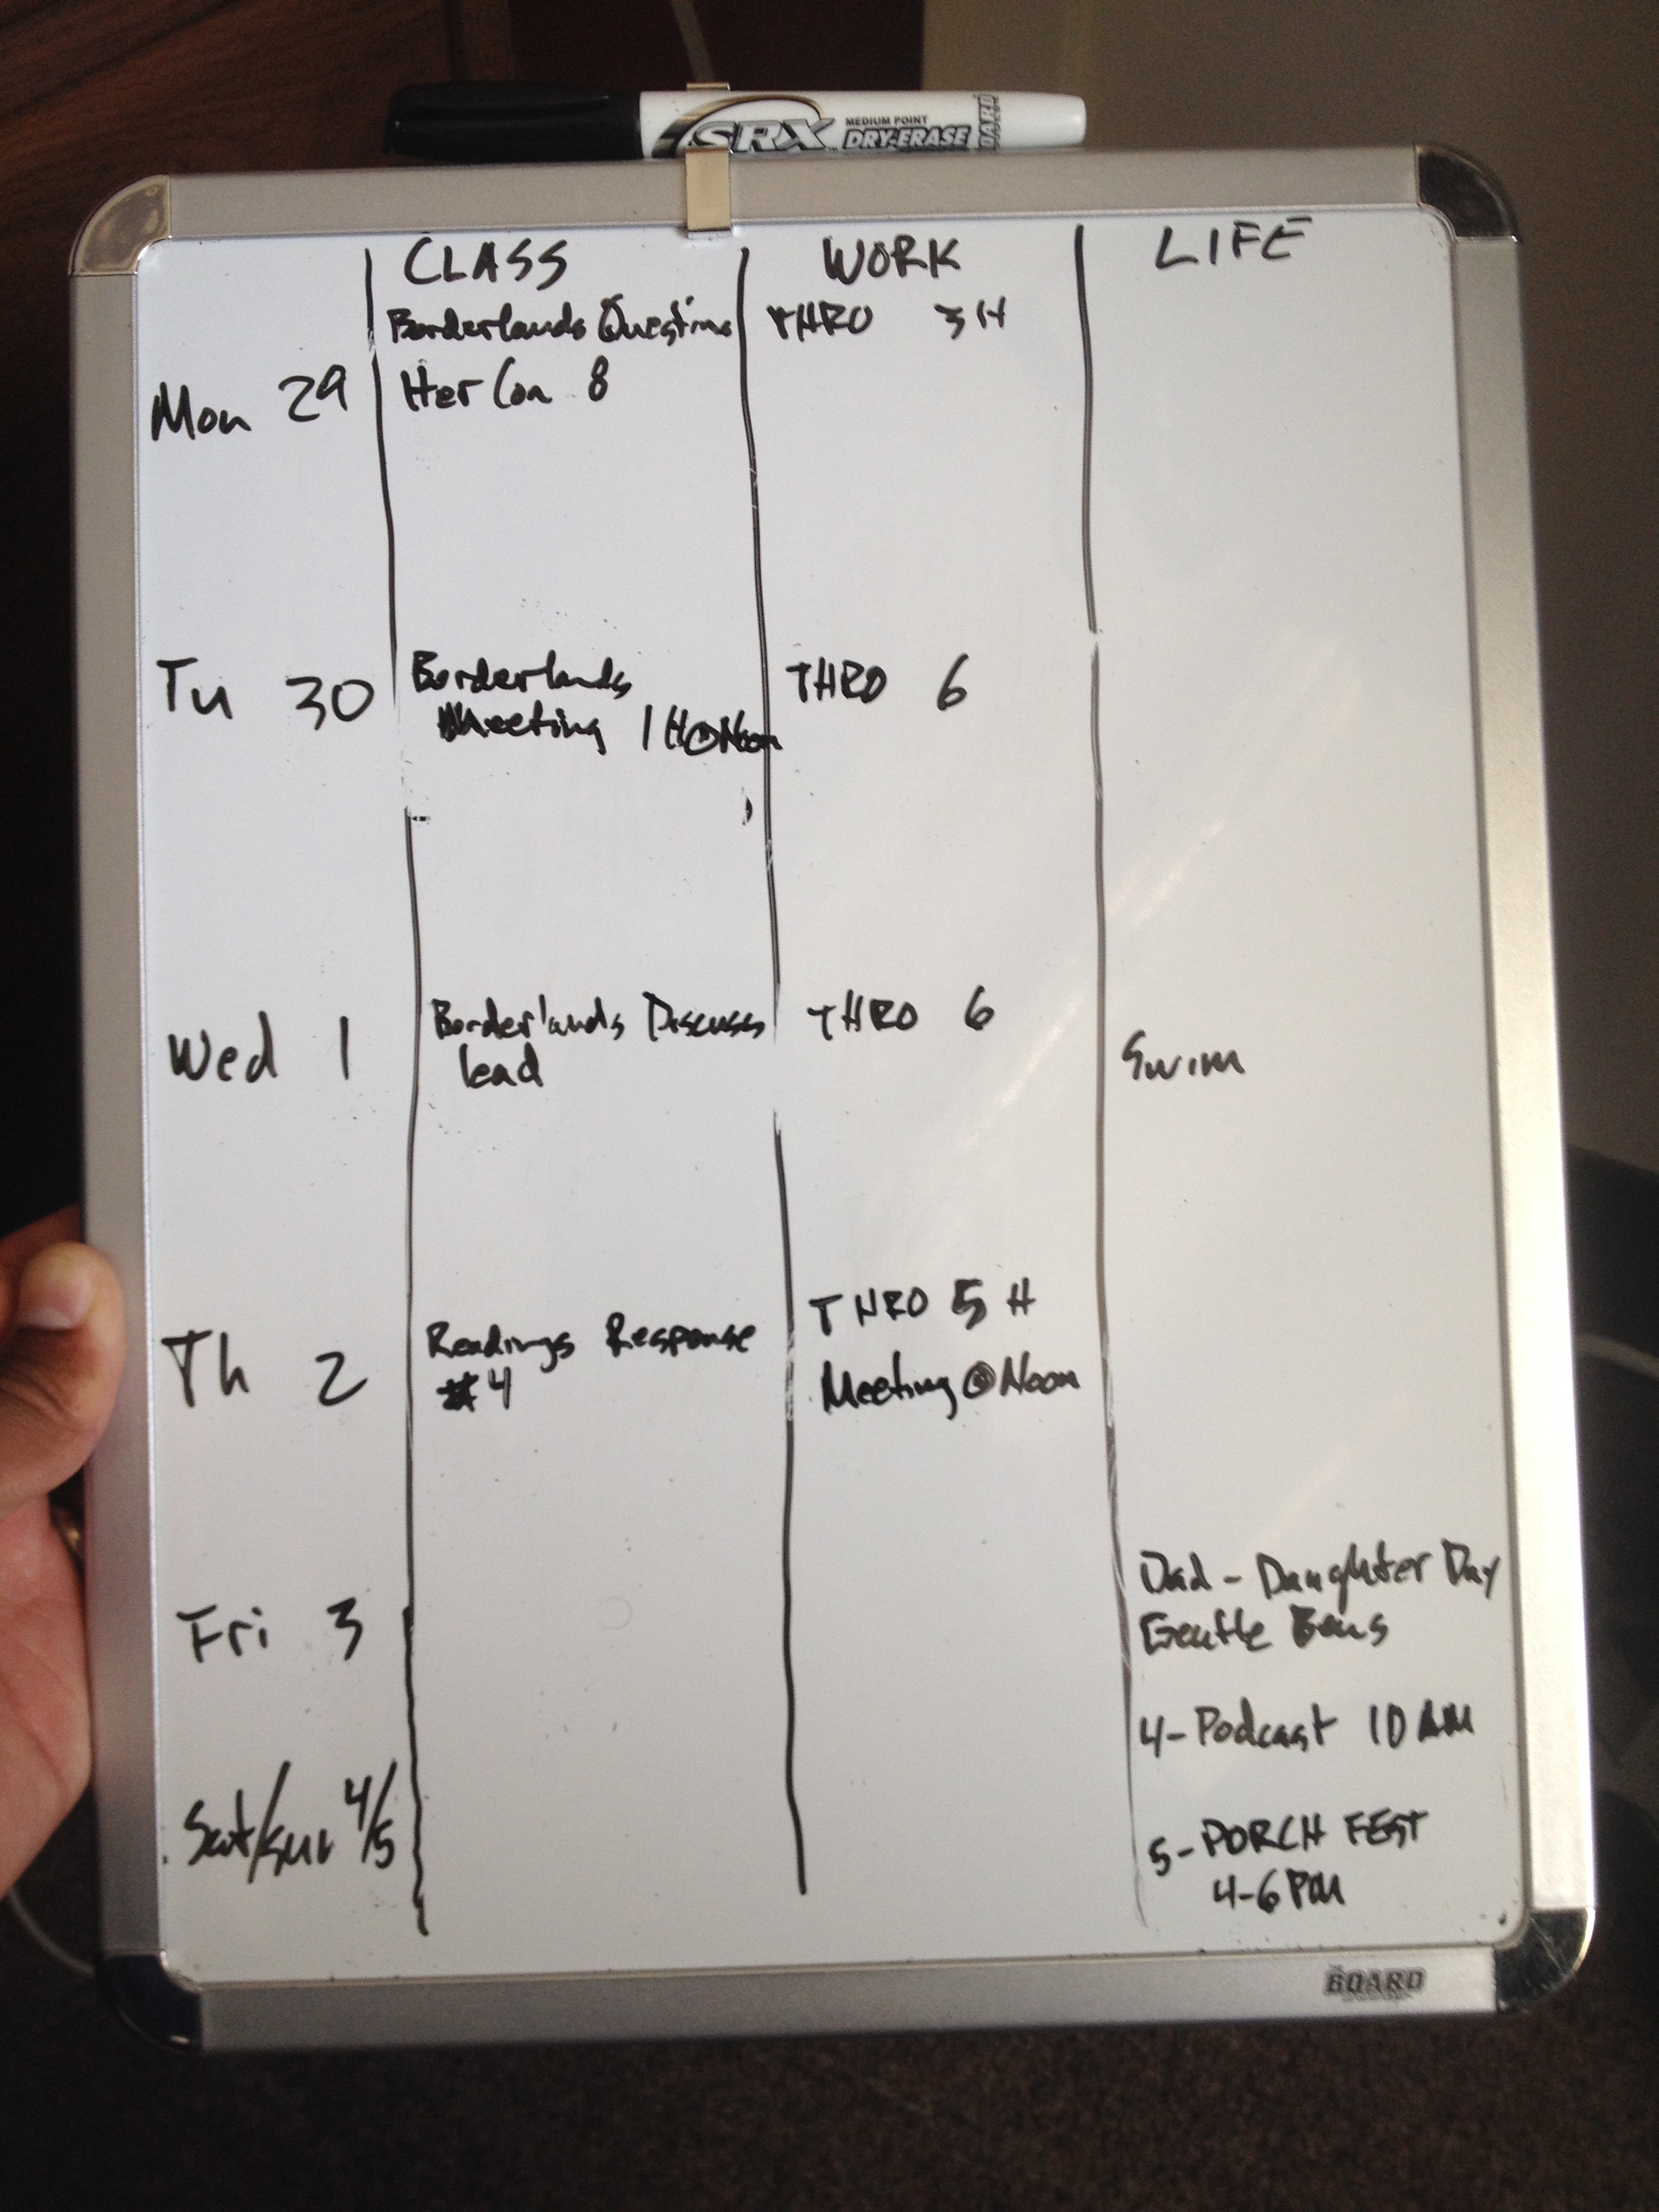 SRX MEDIUM POINT DRY-ERASE BOARD
CLASS WORK LIFE
Borderlands Questions THRO 3H
Mon 29 Her Con 8
Tu 30 Borderlands THRO 6
Meeting 1H@Noon
Wed 1 Borderlands Discuss THRO 6
lead Swim
THRO 5 H
Th 2 Readings Response
#4 Meeting @ Noon
Dad - Daughter Day
Fri 3 Gentle Bens
4-Podcast 10 AM
Sat/Sun 4/5 5-PORCH FEST
4-6 PM
BOARD